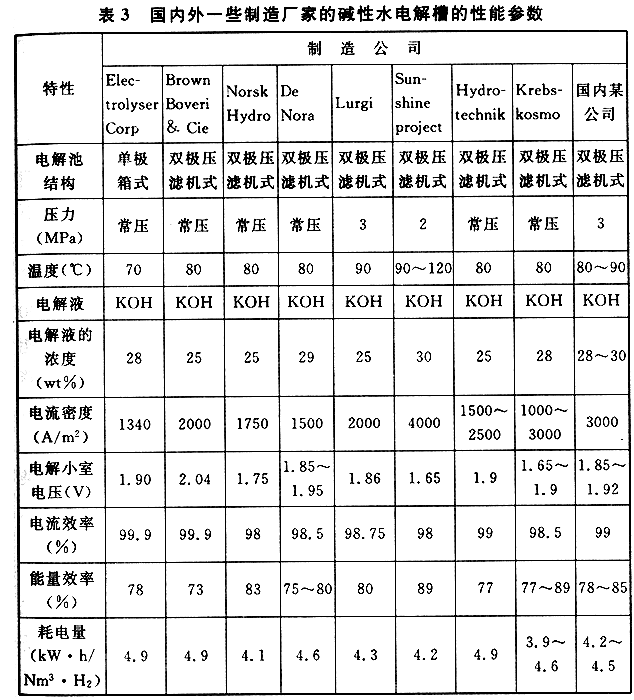 表3 国内外一些制造厂家的碱性水电解槽的性能参数
特性 制造公司
Elec-trolyser Corp Brown Boveri & Cie Norsk Hydro De Nora Lurgi Sun-shine project Hydro-technik Krebs-kosmo 国内某公司
电解池结构 单极箱式 双极压滤机式 双极压滤机式 双极压滤机式 双极压滤机式 双极压滤机式 双极压滤机式 双极压滤机式 双极压滤机式
压力(MPa) 常压 常压 常压 常压 3 2 常压 常压 3
温度(℃) 70 80 80 80 90 90~120 80 80 80~90
电解液 KOH KOH KOH KOH KOH KOH KOH KOH KOH
电解液的浓度(wt%) 28 25 25 29 25 30 25 28 28~30
电流密度(A/m²) 1340 2000 1750 1500 2000 4000 1500~2500 1000~3000 3000
电解小室电压(V) 1.90 2.04 1.75 1.85~1.95 1.86 1.65 1.9 1.65~1.9 1.85~1.92
电流效率(%) 99.9 99.9 98 98.5 98.75 98 99 98.5 99
能量效率(%) 78 73 83 75~80 80 89 77 77~89 78~85
耗电量(kW·h/Nm³·H₂) 4.9 4.9 4.1 4.6 4.3 4.2 4.9 3.9~4.6 4.2~4.5